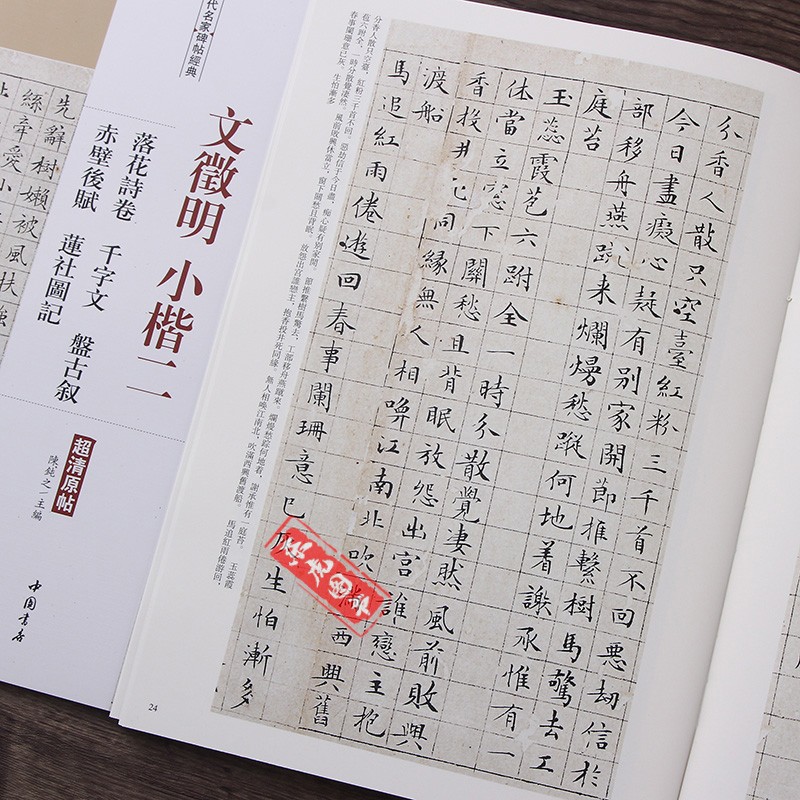 代名家碑帖經典
文徵明 小楷二
落花詩卷 千字文 盤古叙
赤壁後賦 蓮社圖記
超清原帖
陳鈍之一主編
中国書店
先辭樹嬾被風扶強
絲牽愛小
分香人散只空臺紅粉三千首不回惡劫信於
今日盡癡心疑有別家開節推繫樹馬驚去工
部移舟燕蹴来爛熳愁蹤何地着謝承惟有一
庭苔
玉蕊霞苞六跗全一時分散覺凄然風前敗興
休當立窓下關愁且背眠放怨出宮誰戀主抱
香投井死同緣無人相喚江南北吹滿西興舊
渡船
馬追紅雨倦遊回春事闌珊意已灰生怕漸多
分香人散只空臺，紅粉三千首不回。惡劫信于今日盡，癡心疑有別家開。節推繫樹馬驚去，工部移舟燕蹴來。爛熳愁踪何地着，謝承惟有一庭苔。 玉蕊霞
苞六跗全，一時分散覺凄然。風前敗興休當立，窗下關愁且背眠。放怨出宮誰戀主，抱香投井死同緣。無人相喚江南北，吹滿西興舊渡船。 馬追紅雨倦游回，
春事闌珊意已灰。生怕漸多
24